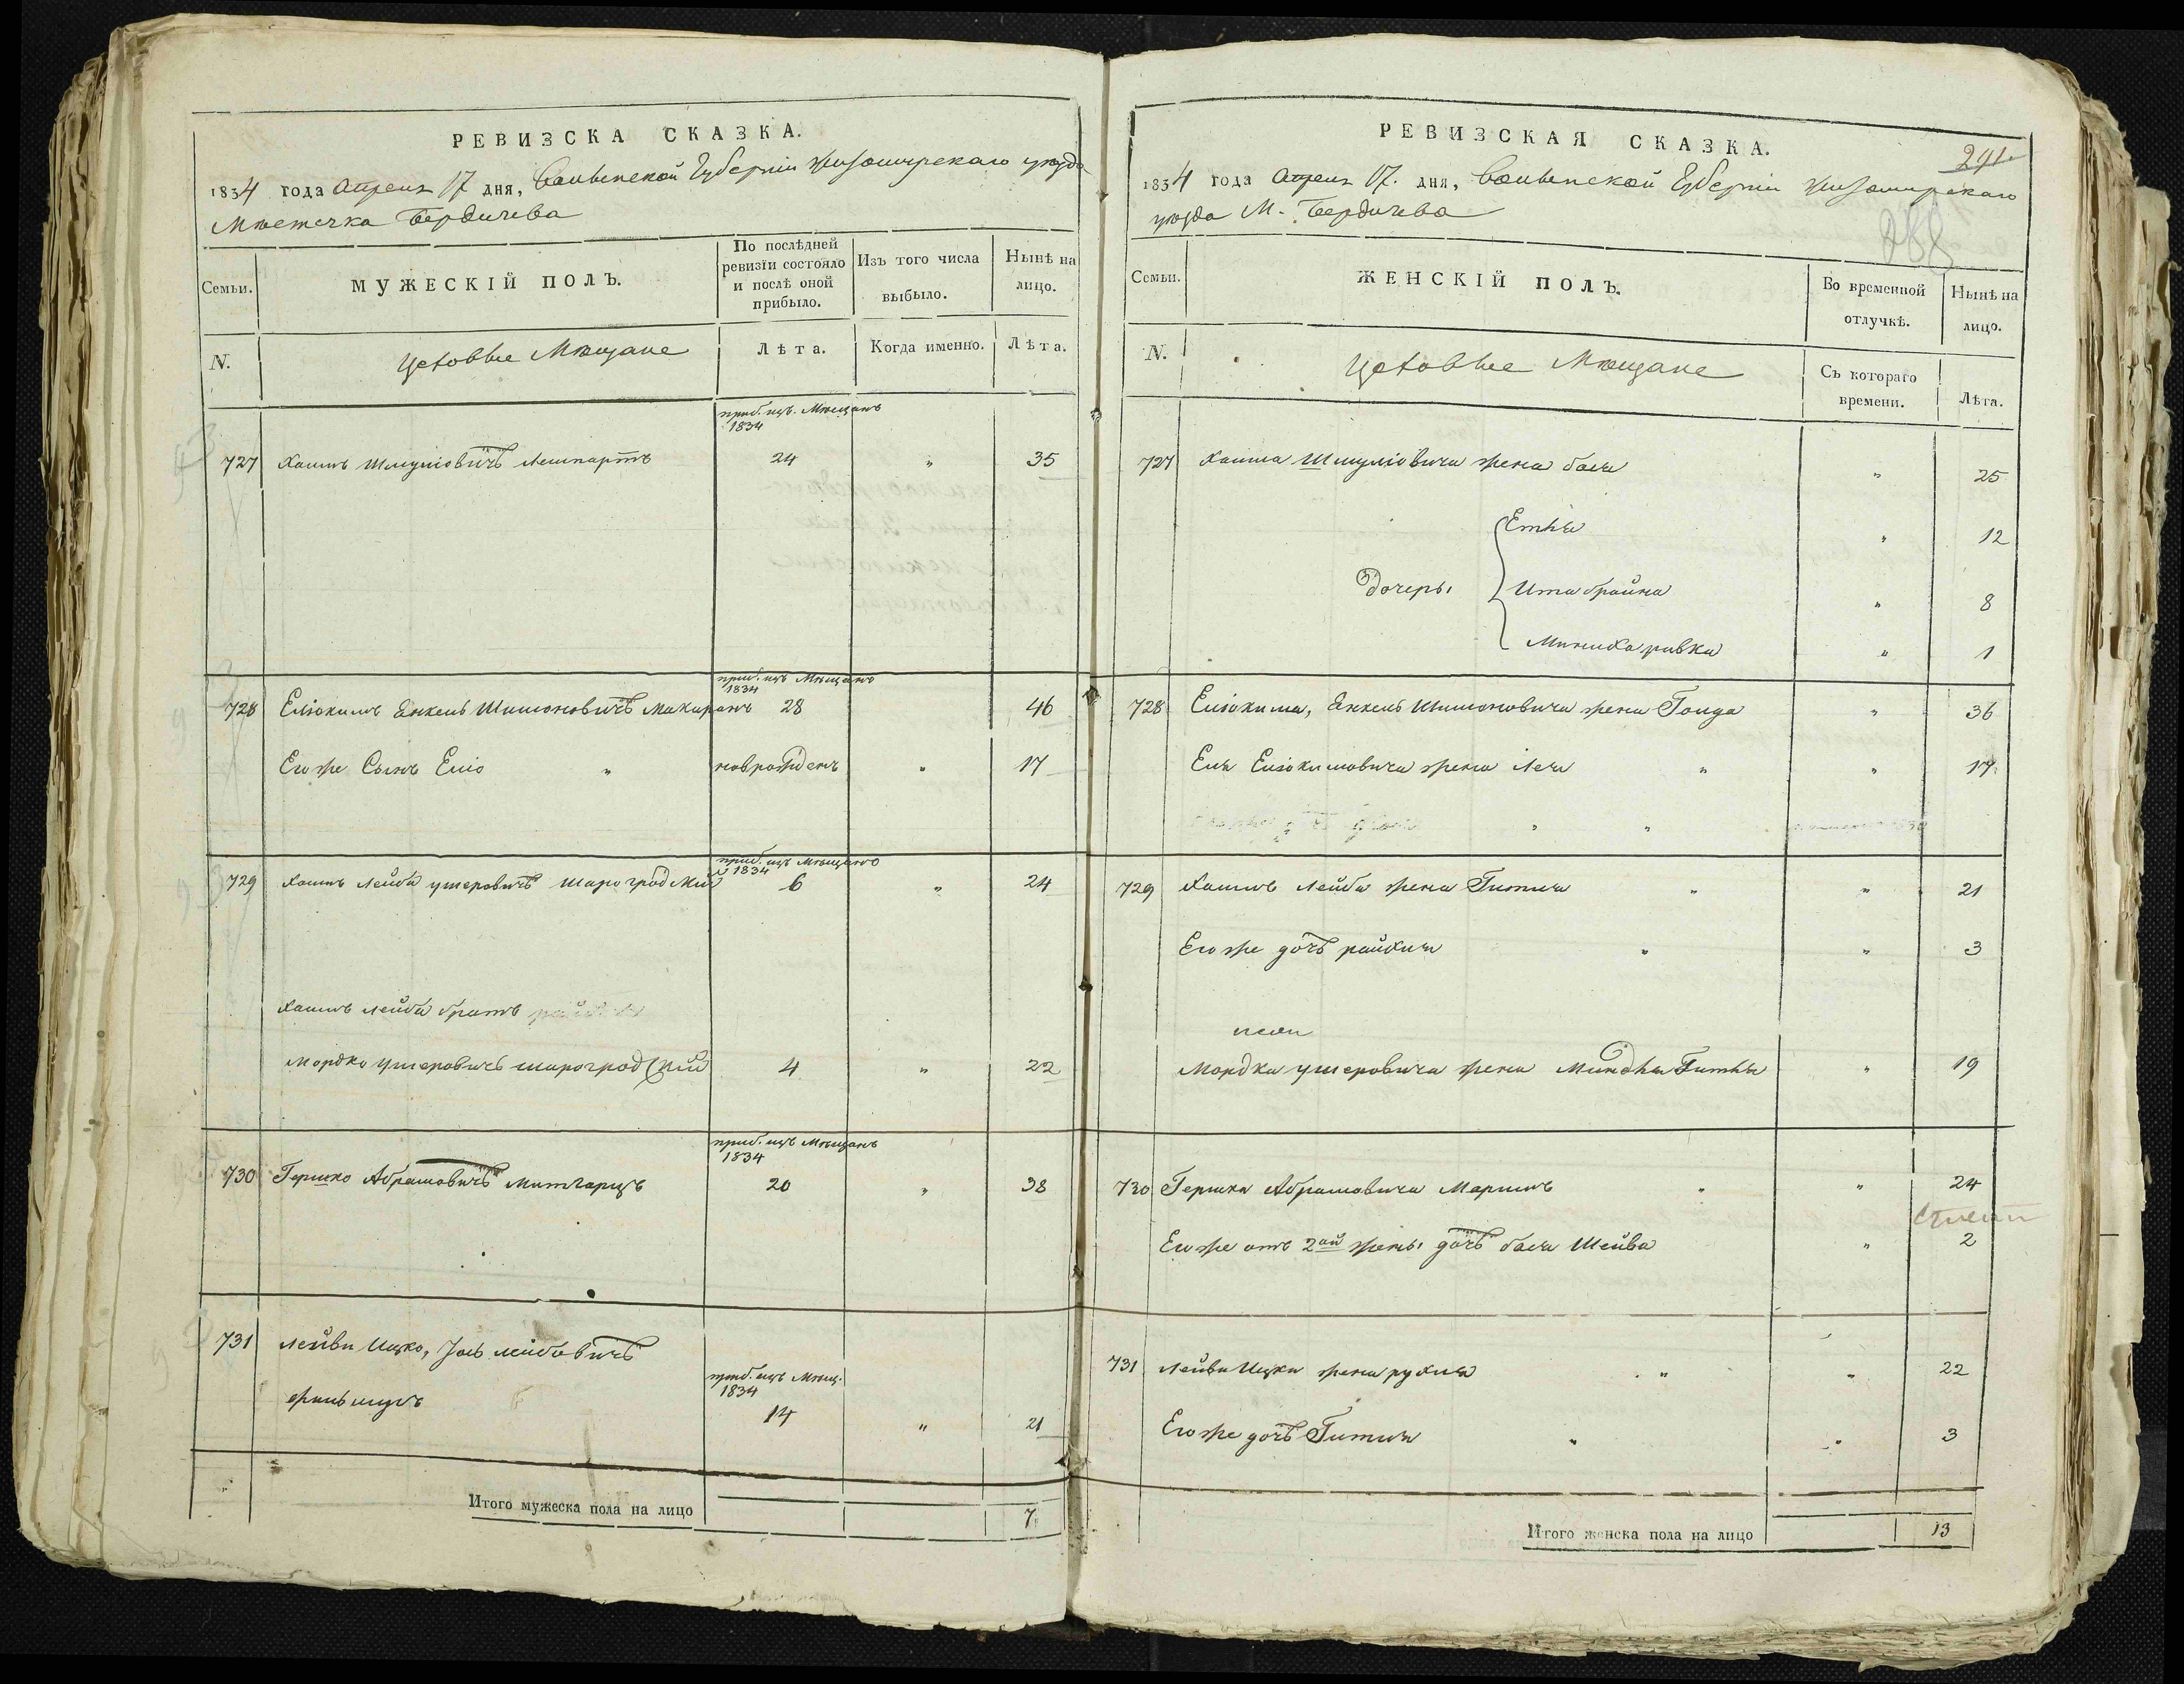 РЕВИЗСКА СКАЗКА.
1834 года Апреля 17 дня, Волынской Губернiи Житомирскаго уезда
Мѣстечка Бердичева
Семьи.
МУЖЕСКIЙ ПОЛЪ.
По послѣдней ревизiи состояло и послѣ оной прибыло.
Изъ того числа выбыло.
Нынѣ на лицо.
N.
Цеховые Мѣщане
Лѣта.
Когда именно.
Лѣта.
приб. изъ Мѣщанъ
1834
727 Хаимъ Шмулiовичъ 24 " 35
приб. изъ Мѣщанъ
1834
728 Елiокимъ Янкель Шимоновичъ Макаранъ 28 46
Его же Сынъ Елiо " новрожденъ " 17
приб. изъ Мѣщанъ
1834
729 Хаимъ Лейба Ушеровичъ Шароградскiй 6 " 24
Хаимъ Лейба братъ
Мордко Ушеровичъ Шароградскiй 4 " 22
приб. изъ Мѣщанъ
1834
730 Гершко Абрамовичъ 20 " 38
731 Лейви Ицко, Iоль Лейбовичъ
приб. изъ Мѣщ.
1834
14 " 21
Итого мужеска пола на лицо 7
РЕВИЗСКАЯ СКАЗКА.
291
1834 года Апреля 17. дня, Волынской Губернiи Житомирскаго
уезда М. Бердичева
288
Семьи.
ЖЕНСКIЙ ПОЛЪ.
Во временной отлучкѣ.
Нынѣ на лицо.
N.
Цеховые Мѣщане
Съ котораго времени.
Лѣта.
727 Хаима Шмулiовича жена Бася " 25
Етля " 12
Дочеры
Ита Брайна " 8
Ривка " 1
728 Елiокима, Янкеля Шимоновича жена Голда " 36
Еля Елiокимовича жена Лея " " 17
729 Хаимъ Лейба жена Гитля " " 21
Его же дочъ Райхля " " 3
Мордка Ушеровича жена Миндля Гитля " 19
730 Гершка Абрамовича Маримъ " " 24
Его же отъ 2ой жены дочъ Бася Шейва " 2
731 Лейви Ицка жена Рухля " " 22
Его же дочъ Гитля " " 3
Итого женска пола на лицо 13